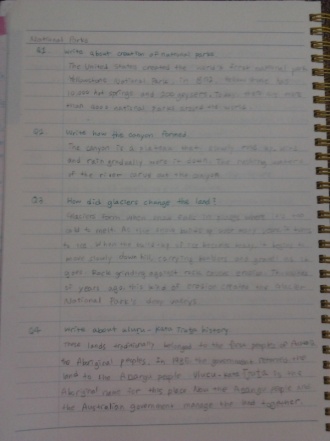 National Parks
Q1. Write about creation of national parks
The United States created the world's first national park
Yellowstone National Park, in 1872. Yellowstone has
10,000 hot springs and 200 geysers. Today, there are more
than national parks around the world.
Q2. Write how the canyon formed
The canyon is a plateau that slowly rose up, wind
and rain gradually wore it down. The rushing waters
of the river carve out the canyon.
Q3. How did glaciers change the land?
Glaciers form when snow falls in places where it's too
cold to melt. As the snow builds up over many years it turns
to ice. When the build-up of ice becomes heavy it begins to
move slowly downhill, carrying boulders and gravel as it
goes. Rock grinding against rock causes erosion. Thousands
of years ago this kind of motion created the Glacier
National Park's deep valleys.
Q4. Write about Uluru - Kata Tjuta history
These lands originally belonged to the first peoples of Australia,
the Aboriginal peoples. In 1985 the government returned the
land to the Anangu people. Uluru-Kata Tjuta is the
Aboriginal name for this place. Now the Anangu people and
the Australian government manage the land together.